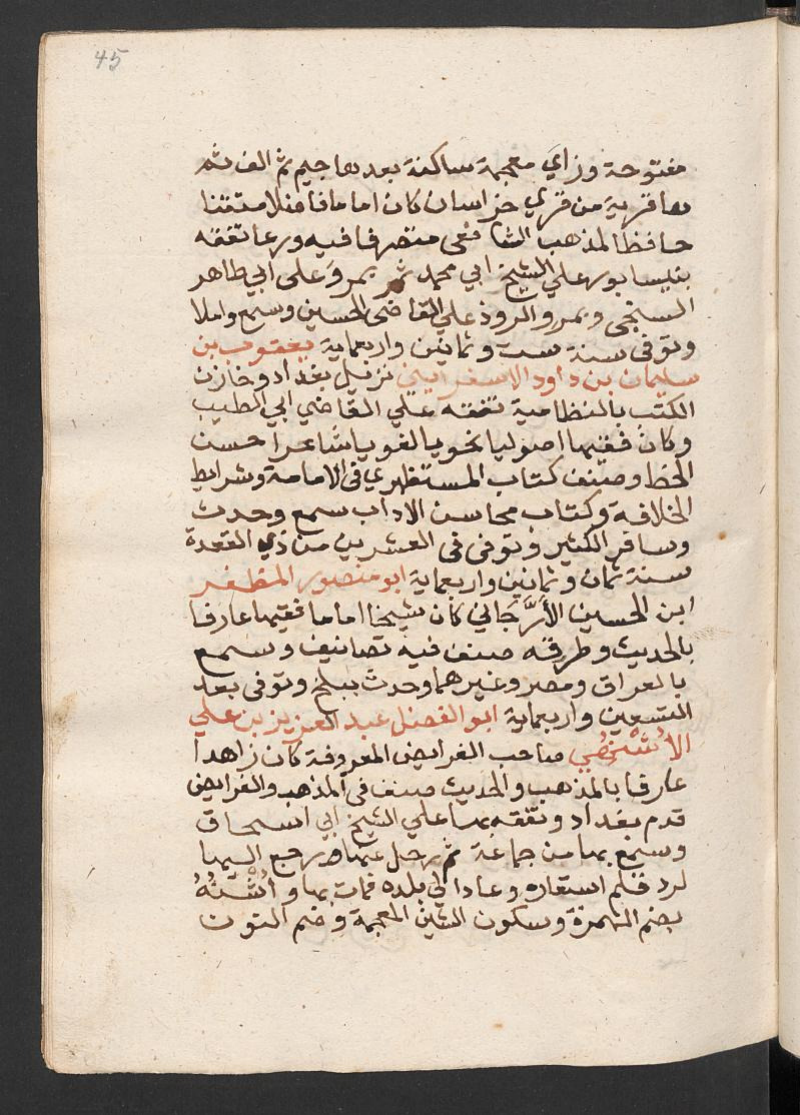 45
مفتوحة وزاي معجمة ساكنة بعدها جيم ثم الف ثم
ها قرية من قري خراسان كان اماما فاضلا متقنا
حافظا لمذهب الشافعي متصرفا فيه ورعا تفقه
بنيسابور علي الشيخ ابي محمد ثم بمرو على ابي طاهر
السنجى وبمرو الروذ علي القاضى الحسين وسمع واملا
وتوفى سنة ست وثمانين واربعماية يعقوب بن
سليمان بن داود الاسفرايني نزيل بغداد وخازن
الكتب بالنظامية تفقه علي القاضي ابي الطيب
وكان فقيها اصوليا نحويا لغويا شاعرا حسن
الخط وصنف كتاب المستظهري فى الامامة وشرايط
الخلافة وكتاب محاسن الاداب سمع وحدث
وسافر الكثير وتوفى فى العشرين من ذي القعدة
سنة ثمان وثمانين واربعماية ابو منصور المظفر
ابن الحسين الأَرَّجَاني كان شيخا اماما فقيها عارفا
بالحديث وطرقه صنف فيه تصانيف وسمع
بالعراق ومصر وغيرهما وحدث ببلخ وتوفى بعد
التسعين واربعماية ابو الفضل عبد العزيز بن علي
الأُشْنُهي صاحب الفرايض المعروفة كان زاهدا
عارفا بالمذهب والحديث صنف فى المذهب والفرايض
قدم بغداد وتفقه بها علي الشيخ ابي اسحاق
وسمع بها من جماعة ثم رحل عنها ورجع اليها
لرد قلم استعاره وعاد الي بلده فمات بها وأُشْنُهُ
بضم الهمزة وسكون الشين المعجمة وضم النون